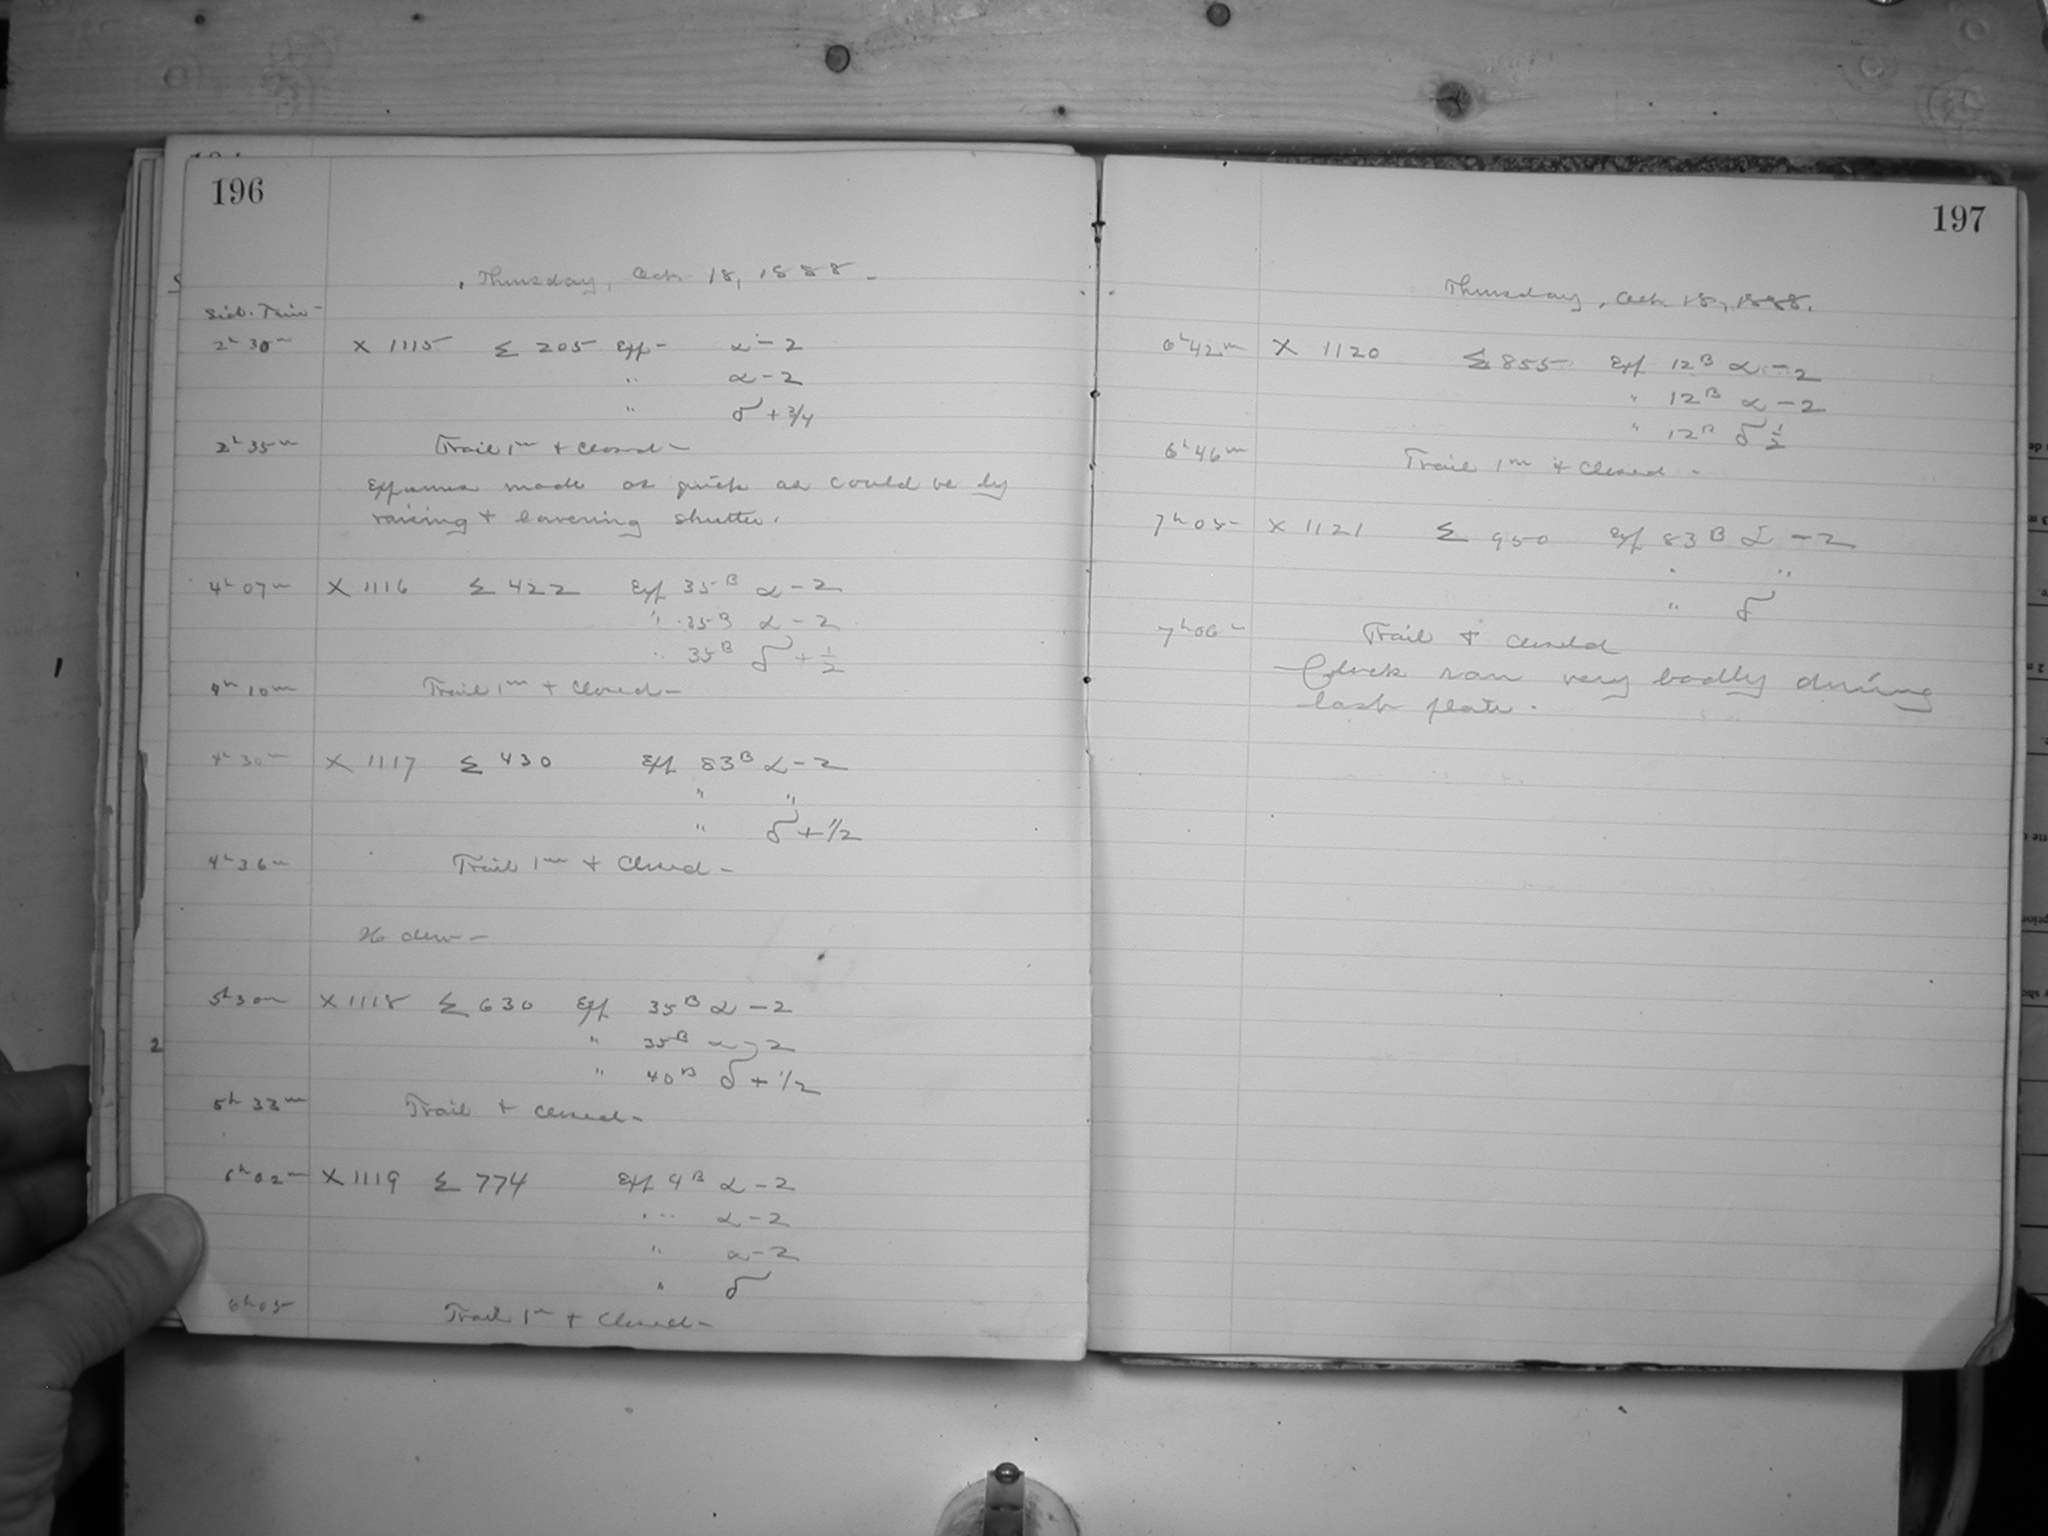 196
Thursday, Oct. 18, 1888.
Sid. Time
2h 30m X 1115 Σ 205 Exp- α-2
" α-2
" δ+3/4
2h 35m Trail 1m + closed-
Exposures made as quick as could be by
raising + lowering shutter.
4h 07m X 1116 Σ 422 Exp 35B α-2
" 35B α-2
" 35B δ+1/2
4h 10m Trail 1m + closed-
4h 30m X 1117 Σ 430 Exp 83B α-2
" "
" δ+1/2
4h 36m Trail 1m + closed-
No dew-
5h 30m X 1118 Σ 630 Exp 35B α-2
" 35B α-2
" 40B δ+1/2
2
5h 33m Trail + closed-
6h 02m X 1119 Σ 774 Exp 9B α-2
" " α-2
" α-2
" δ
6h 05 Trail 1m + closed-
197
Thursday, Oct. 18, 1888.
6h 42m X 1120 Σ 855 Exp 12B α-2
" 12B α-2
" 12B δ 1/2
6h 46m Trail 1m + closed-
7h 05- X 1121 Σ 950 Exp 83B α-2
" "
" δ
7h 06m Trail + closed
Clock ran very badly during
last plate.